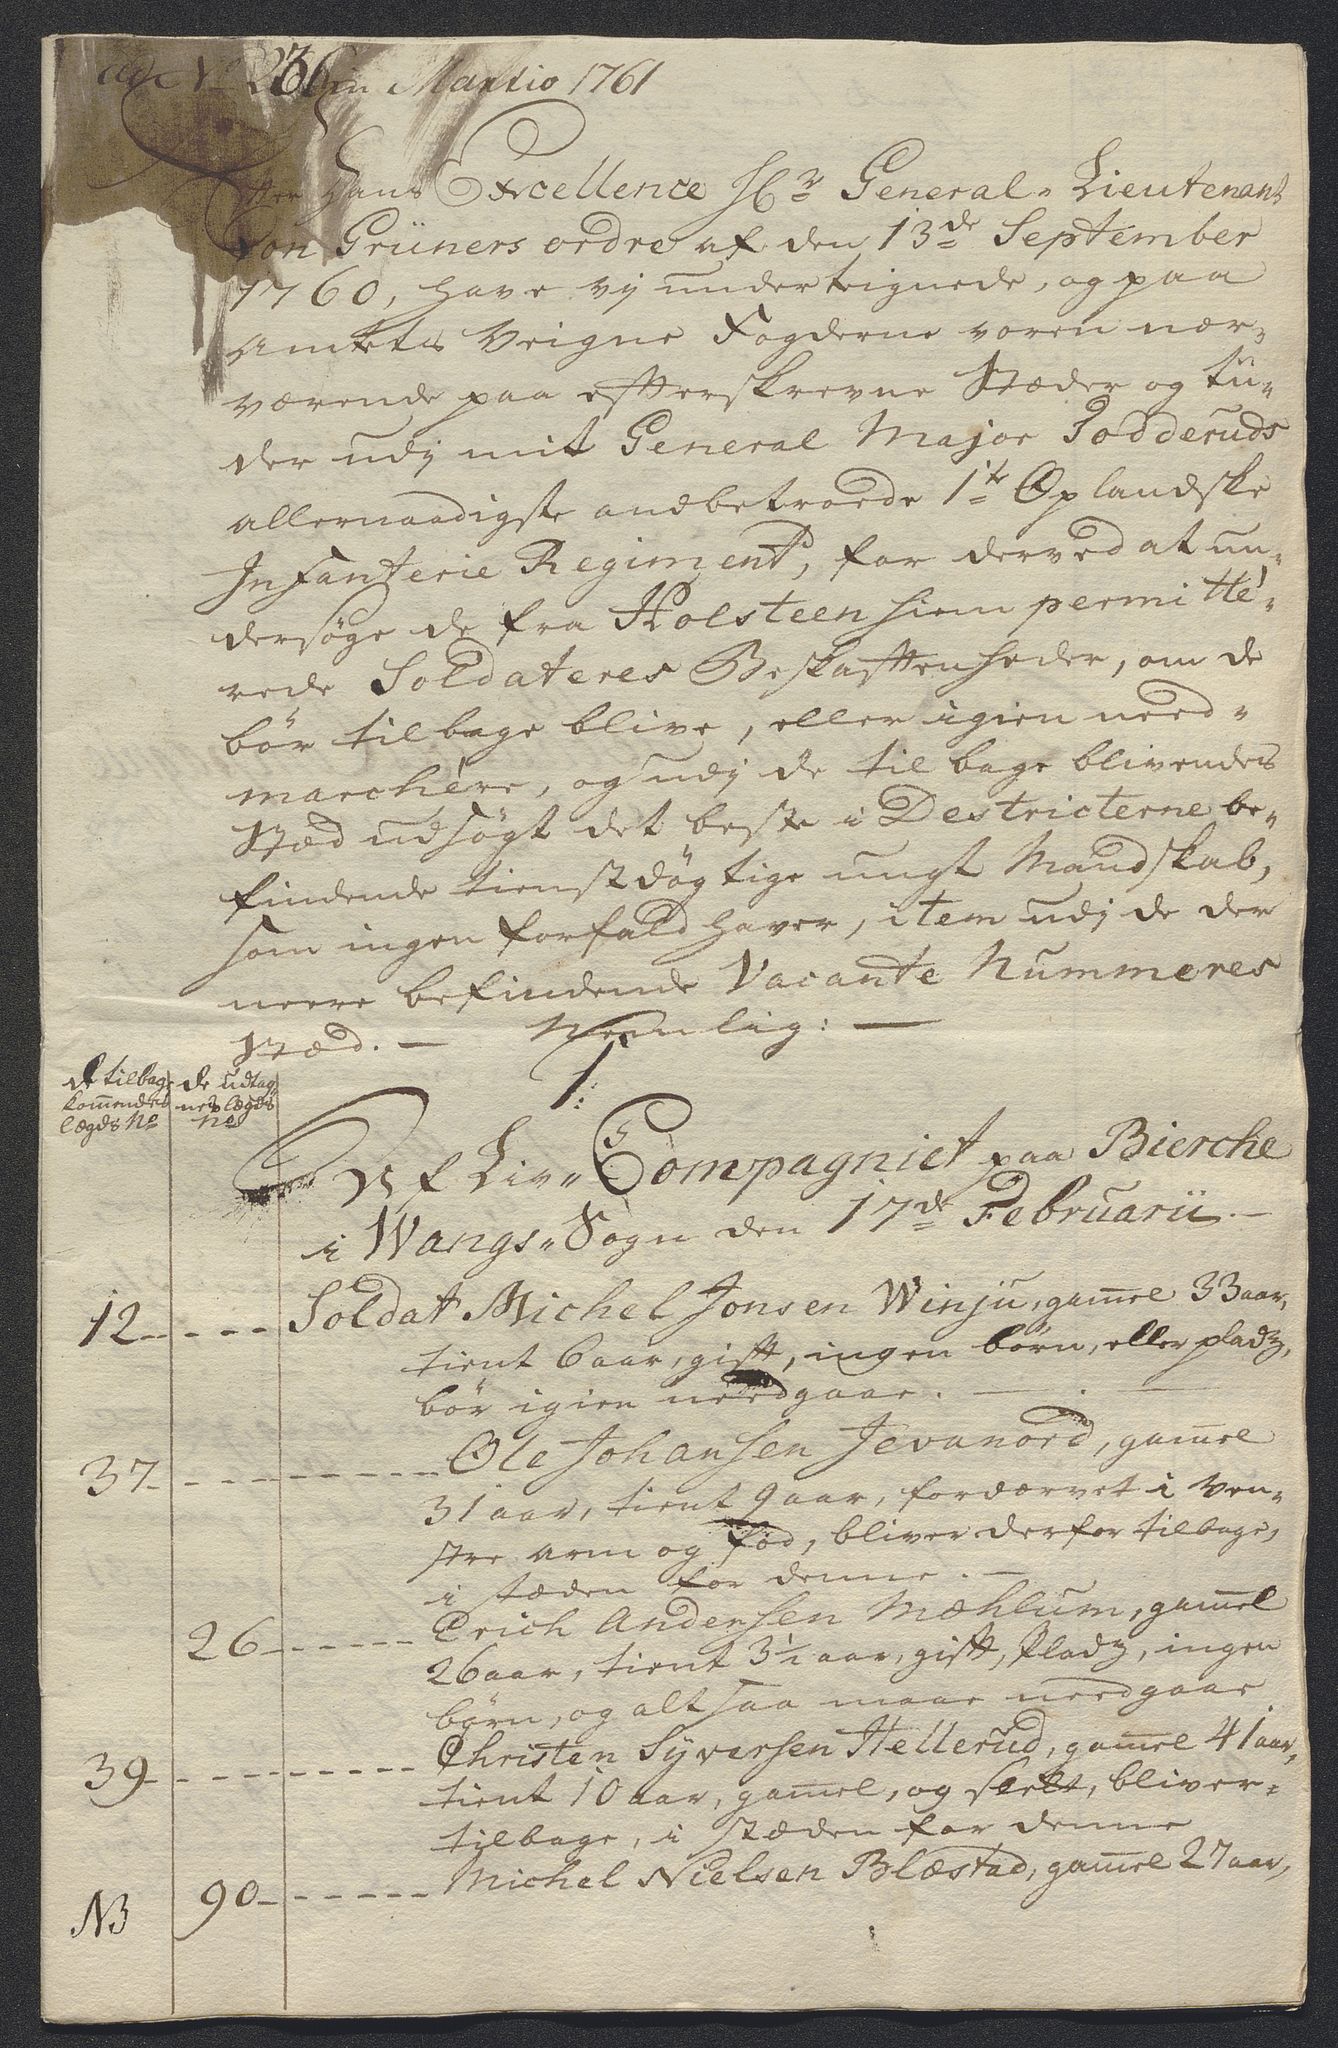 ad N 236 in Martio 1761
Efter Hans Excellence Hr General-Lieutenant
von Grüners ordre af den 13de September
1760, have vij undertegnede, og paa
Amtets Veigne Fogderne voren nær-
værende paa efterskrevne Stæder og tii-
der udj mit General Major Jodderuds
allernaadigste andbetroede 1te Oplandske
Infanterie Regiment, for derved at un-
dersøge de fra Holsteen hiem permitte-
rede Soldateres Beskaffenheder, om de
bør tilbage blive, eller igien need-
marchere, og udj de til bage blivendes
stæd udsøgt det beste i Destricterne be-
findende tienstdøgtige ungt Mandskab,
som ingen forfald haver, item udj de der
neere befindende Vacante Nummeres
stæd. — Nemlig: —
1:
de tilbage- de udtag-
kommendes nes lægds
lægds No No
Af Liv- Compagniet paa Bierche
i Wangs- Sogn den 17de Februarii. —
12 - - - - Soldat Michel Jonsen Winju, gamel 33 aar,
tient 6 aar, gift, ingen børn, eller pladz,
bør igien needgaae. — . —
37 - - - - Ole Johansen Jevanord, gamel
31 aar, tient 9 aar, fordærvet i ven-
stre arm og fod, bliver derfor tilbage,
i stæden for denne. —
26 - - - - Erich Andersen Mæhlum, gamel
26 aar, tient 3½ aar, gift, Pladz, ingen
børn, og alt saa maae needgaae
39 - - - - Christen Syversen Hellerud, gamel 41 aar,
tient 10 aar, gamel, og slett, bliver-
tilbage, i stæden for denne
NB 90 - - - - Michel Nielsen Blæstad, gamel 27 aar,